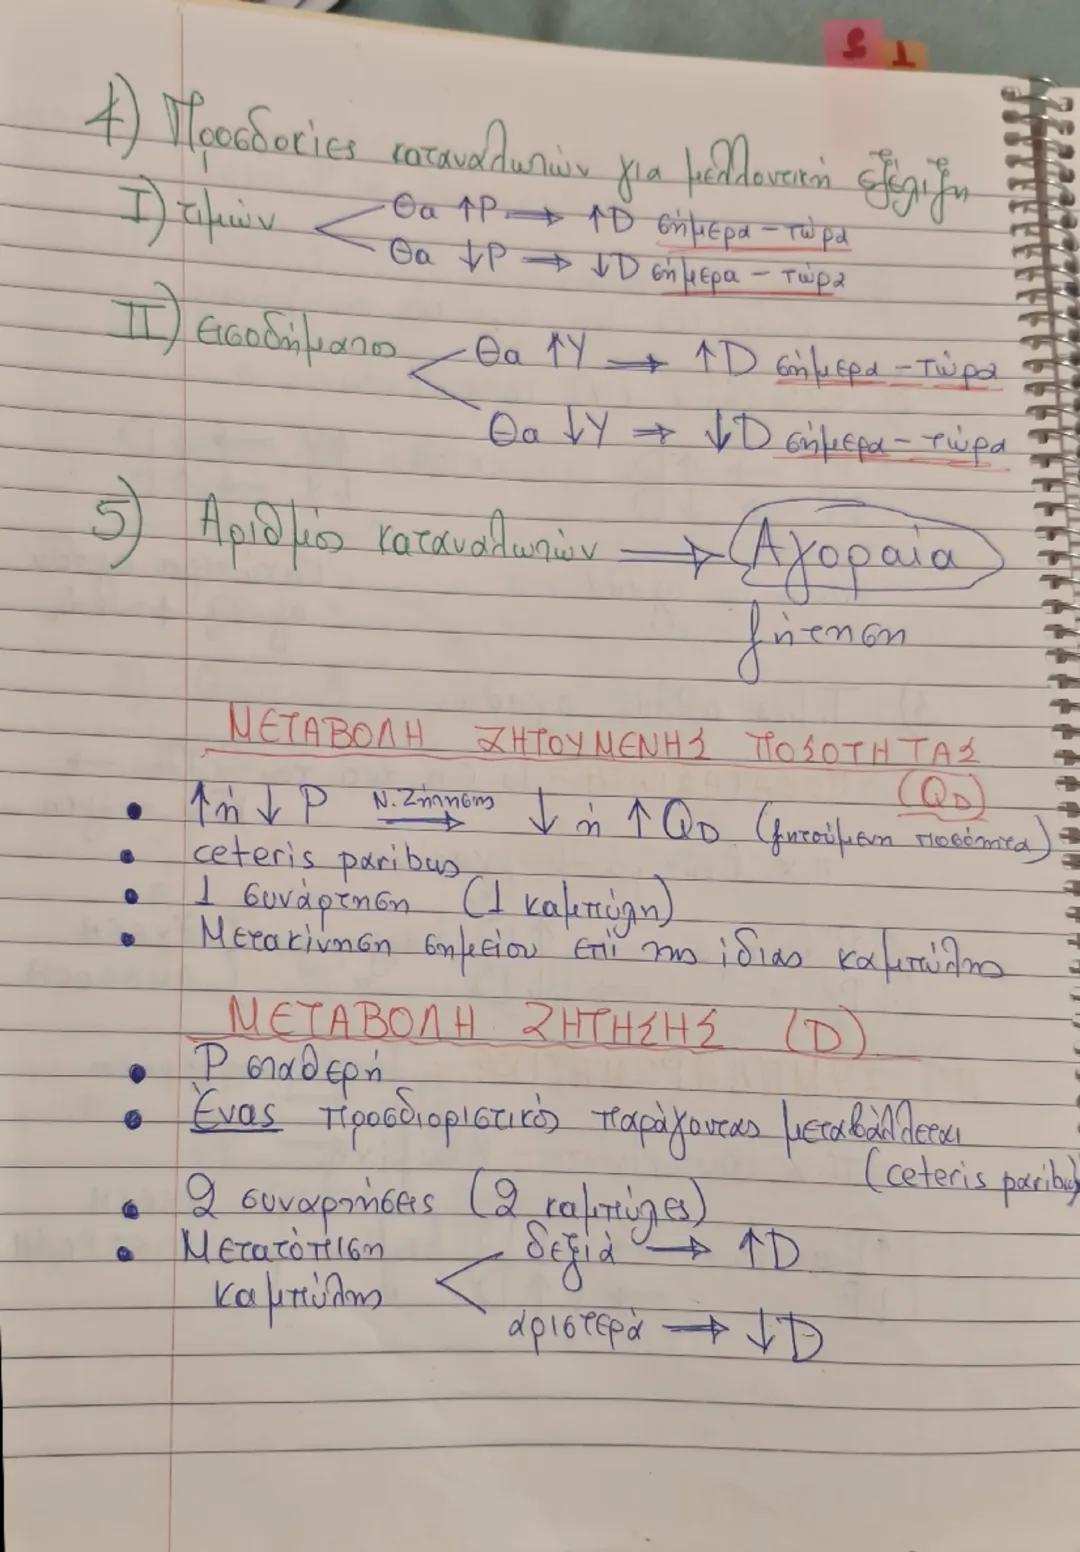 4) Προσδοκίες καταναλωτών για μελλοντική εξέλιξη
I) τιμών
Θα ↑P → ↑D σήμερα - τώρα
Θα ↓P → ↓D σήμερα - τώρα
II) εισοδήματος
Θα ↑Y → ↑D σήμερα - τώρα
Θα ↓Y → ↓D σήμερα - τώρα
5) Αριθμός καταναλωτών → Αγοραία
ζήτηση
ΜΕΤΑΒΟΛΗ ΖΗΤΟΥΜΕΝΗΣ ΠΟΣΟΤΗΤΑΣ
(QD)
• ↑ ή ↓ P Ν. Ζήτησης → ↓ ή ↑ QD (ζητούμενη ποσότητα)
• ceteris paribus
• 1 συνάρτηση (1 καμπύλη)
• Μετακίνηση σημείου επί της ίδιας καμπύλης
ΜΕΤΑΒΟΛΗ ΖΗΤΗΣΗΣ (D)
• P σταθερή
• Ένας προσδιοριστικός παράγοντας μεταβάλλεται
(ceteris paribus)
• 2 συναρτήσεις (2 καμπύλες)
• Μετατόπιση δεξιά → ↑D
καμπύλης
αριστερά → ↓D